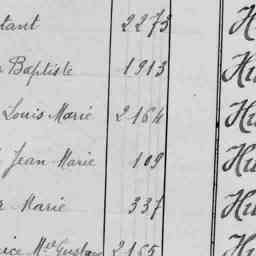 tant 2273 H
Baptiste 1913 Hu
Louis Marie 2164 Hu
Jean Marie 109 Hu
Marie 337 Hu
rice M.el Gustave 2155 Hu